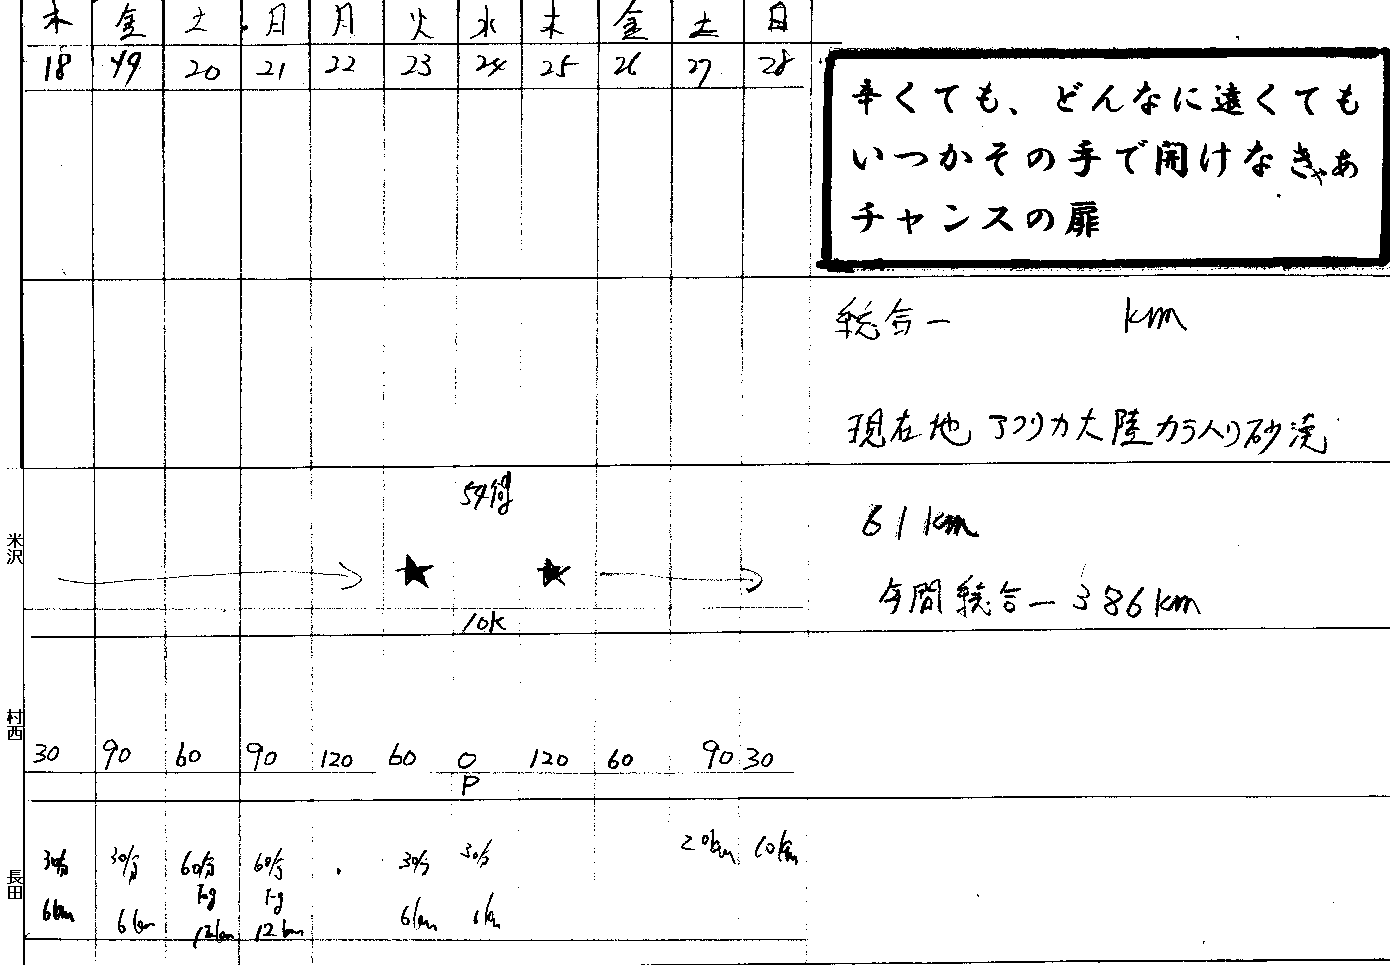 木 金 土 日 月 火 水 木 金 土 日
18 19 20 21 22 23 24 25 26 27 28
辛くても、どんなに遠くても
いつかその手で開けなきゃあ
チャンスの扉
総合ー km
現在地 アフリカ大陸カラハリ砂漠
米沢
★ ★
10K
61km
年間総合ー386km
村西
30 90 60 90 120 60 0 120 60 90 30
P
長田
30分 30分 60分 60分 30分 30分 20km 10km
6km 6km 12km 12km 6km